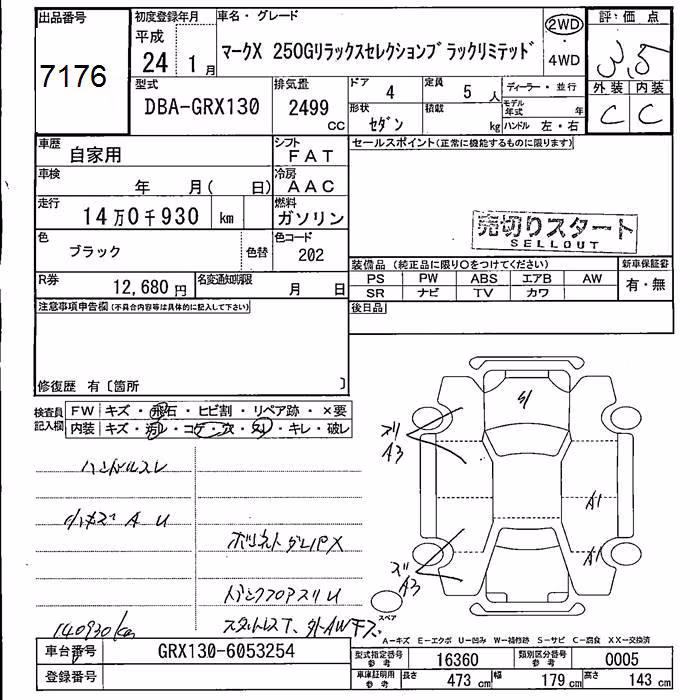 出品番号
7176
初度登録年月
平成
24年 1月
車名・グレード
マークX 250Gリラックスセレクションブラックリミテッド
2WD
・
4WD
評価点
3.5
外装 内装
C C
型式
DBA-GRX130
排気量
2499
CC
ドア
4
定員
5 人
形状
セダン
積載
kg
ディーラー・並行
モデル年式 年
ハンドル 左・右
車歴
自家用
シフト
FAT
車検
年 月( 日)
冷房
AAC
走行
14万0千930 km
燃料
ガソリン
色
ブラック
色替
色コード
202
R券
12,680円
名変通知期限
月 日
セールスポイント(正常に機能するものに限ります)
売切りスタート
SELLOUT
装備品(純正品に限り○をつけてください)
PS PW ABS エアB AW
SR ナビ TV カワ
新車保証書
有・無
後日品
注意事項申告欄(不具合内容等は具体的に記入して下さい)
修復歴 有〔箇所 〕
検査員記入欄
FW キズ・飛石・ヒビ割・リペア跡・×要
内装 キズ・汚レ・コゲ・穴・スレ・キレ・破レ
ハンドルスレ
小キズ A U
ボンネットダンパX
トランクフロアスリU
140930km
スタットレスT、外AWキズ
S1
スリ
A3
A1
A1
スリ
A3
スペア
A-キズ E-エクボ U-凹み W-補修跡 S-サビ C-腐食 XX-交換済
車台番号
GRX130-6053254
登録番号
型式指定番号
参考
16360
類別区分番号
参考
0005
車庫証明用
参考
長さ 473 cm 幅 179 cm 高さ 143 cm